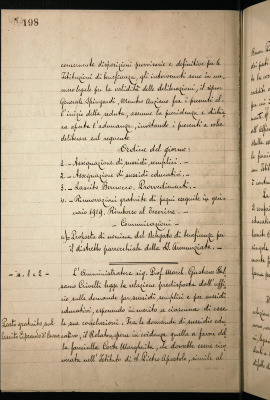 198
concernente disposizioni provvisorie e definitive per le
Istituzioni di beneficenza, gli intervenuti sono in nu-
mero legale per la validità delle deliberazioni, il signor
Generale Spingardi, Membro Anziano fra i presenti al-
l'inizio della seduta, assume la presidenza e dichia-
ra aperta l'adunanza, invitando i presenti a voler
deliberare sul seguente
Ordine del giorno:
1. - Assegnazione di sussidi semplici. -
2. - Assegnazione di sussidi educativi. -
3. - Lascito Bernocco. Provvedimenti. -
4. - Rinnovazioni gratuite di pegni eseguite in gen-
naio 1919. Rimborso al Tesoriere. -
- Comunicazioni -
a/ Protesta di nomina del Delegato di beneficenza per
il distretto parrocchiale della SS. Annunziata. -
- n. 1 e 2 -
L'Amministratore sig. Prof. March. Gustavo Bal-
samo Crivelli legge la relazione predisposta dall'uffi-
cio sulle domande per sussidi semplici e per sussidi
educativi, esponendo in merito a ciascuna di esse
le sue conclusioni. Tra le domande di sussidio edu-
cativo, il Relatore pone in evidenza quella a favore del-
la fanciulla Costa Margherita, che dovrebbe essere rico-
verata nell'Istituto di S. Pietro Apostolo, simile al
Posto gratuito sul